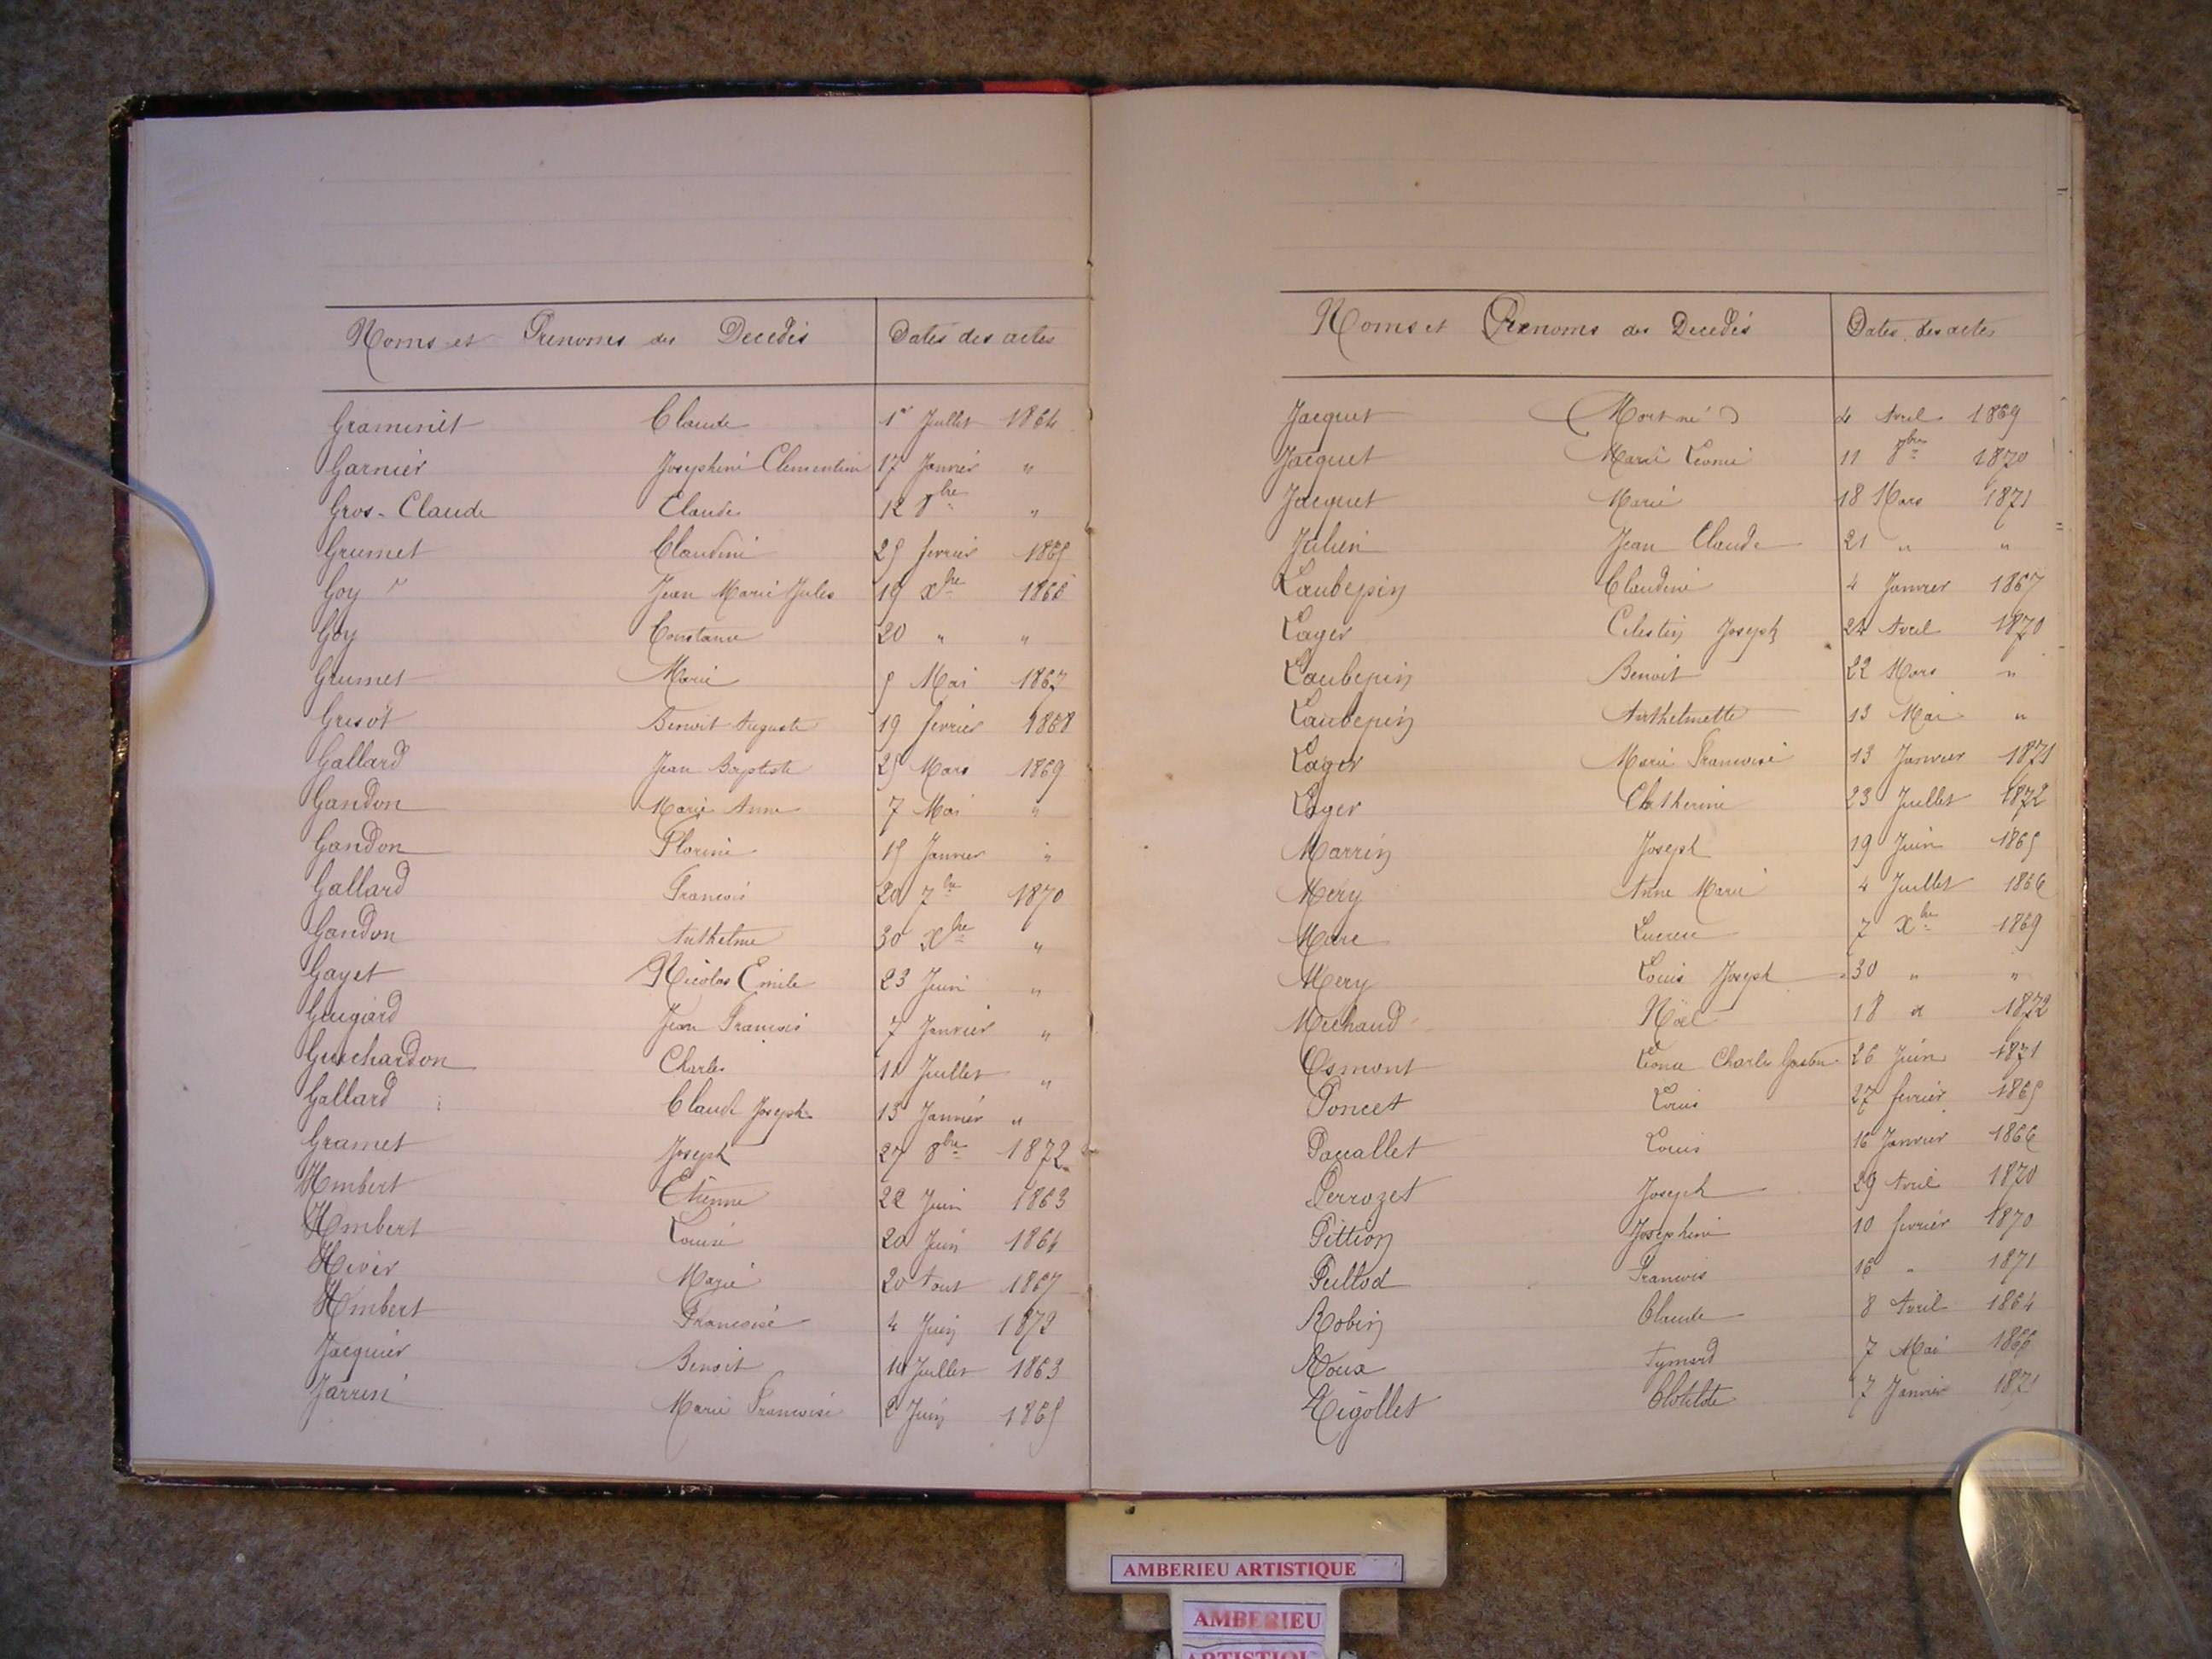 Noms et Prenoms des Decedés Dates des actes
Graminet Claude 1er Juillet 1864
Garnier Josephine Clementine 17 Janvier "
Gros-Claude Claude 12 8bre "
Grumet Claudine 25 fevrier 1865
Goy Jean Marie Jules 19 Xbre 1866
Goy Constance 20 " "
Grumet Marie 5 Mai 1867
Grisot Benoit Auguste 19 fevrier 1868
Gallard Jean Baptiste 25 Mars 1869
Gandon Marie Anne 7 Mai "
Gandon Florine 15 Janvier "
Gallard Francois 20 7bre 1870
Gandon Anthelme 30 Xbre "
Gayet Nicolas Emile 23 Juin "
Guigard Jean Francois 7 Janvier "
Guichardon Charles 11 Juillet "
Gallard Claude Joseph 13 Janvier "
Gramet Joseph 27 8bre 1872
Humbert Etienne 22 Juin 1863
Humbert Louise 20 Juin 1864
Hiver Marie 20 Aout 1867
Humbert Francoise 4 Juin 1872
Jacquier Benoit 10 Juillet 1863
Jarrin Marie Francoise 2 Juin 1865
Noms et Prenoms des Decedés Dates des actes
Jacquet (Mort né) 4 Avril 1869
Jacquet Marie Leonie 11 8bre 1870
Jacquet Marie 18 Mars 1871
Julien Jean Claude 21 " "
Laubepin Claudine 4 Janvier 1867
Lager Celestin Joseph 24 Avril 1870
Laubepin Benoit 22 Mars "
Laubepin Anthelmette 13 Mai "
Lager Marie Francoise 13 Janvier 1871
Lager Catherine 23 Juillet 1872
Marrin Joseph 19 Juin 1865
Mery Anne Marie 4 Juillet 1866
Marc Lucrece 7 Xbre 1869
Mery Louis Joseph 30 " "
Michaud Noël 18 " 1872
Osmont Leonce Charles 26 Juin 1871
Poncet Louis 27 fevrier 1865
Pacallet Louis 16 Janvier 1866
Perrozet Joseph 29 Avril 1870
Pittion Josephine 10 fevrier 1870
Peillod Francois 16 " 1871
Robin Claude 8 Avril 1864
Roux Aymard 7 Mai 1866
Rigollet Clotilde 7 Janvier 1871
AMBERIEU ARTISTIQUE
AMBERIEU
ARTISTIQUE